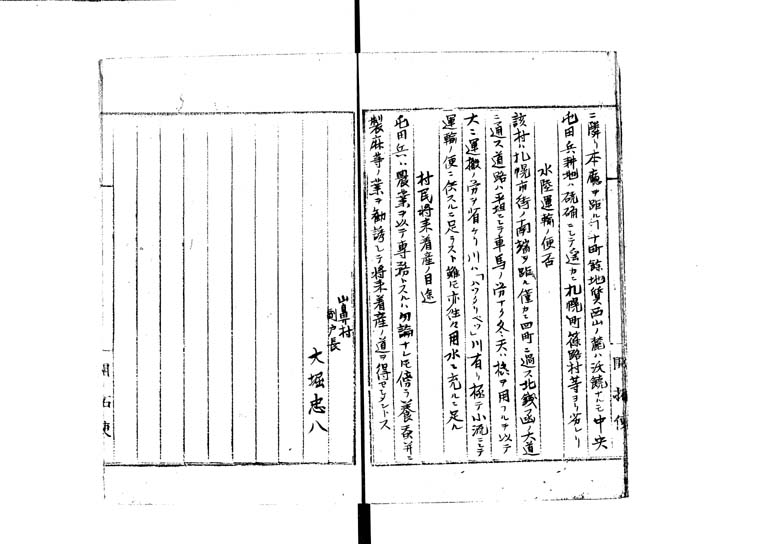 ニ隣リ本廳ヲ距ル〻十町餘地質西山ノ麓ハ沃饒ナルモ中央
屯田兵耕地ハ硗确ニシテ遙カニ札幌町篠路村等ヨリ劣レリ
水陸運輸ノ便否
該村ハ札幌市街ノ南端ヲ距ル僅カニ四町ニ過ス北銭函ノ大道
ニ通ス道路ハ平坦ニシテ車馬ノ労ナク冬天ハ橇ヲ用フルヲ以テ
大ニ運搬ノ労ヲ省ケリ川ハ「ハツタリベツ」川有リ極テ小流ニシテ
運輸ノ便ニ供スルニ足ラスト雖モ亦往々用水ニ充ルニ足ル
村民将来着産ノ目途
屯田兵ハ農業ヲ以テ専務トスルハ勿論ナレモ傍ラ養蚕并ニ
製麻等ノ業ヲ勧誘シテ将来着産ノ道ヲ得セシメントス
山鼻村
副戸長
大堀忠八
開拓使
開拓使